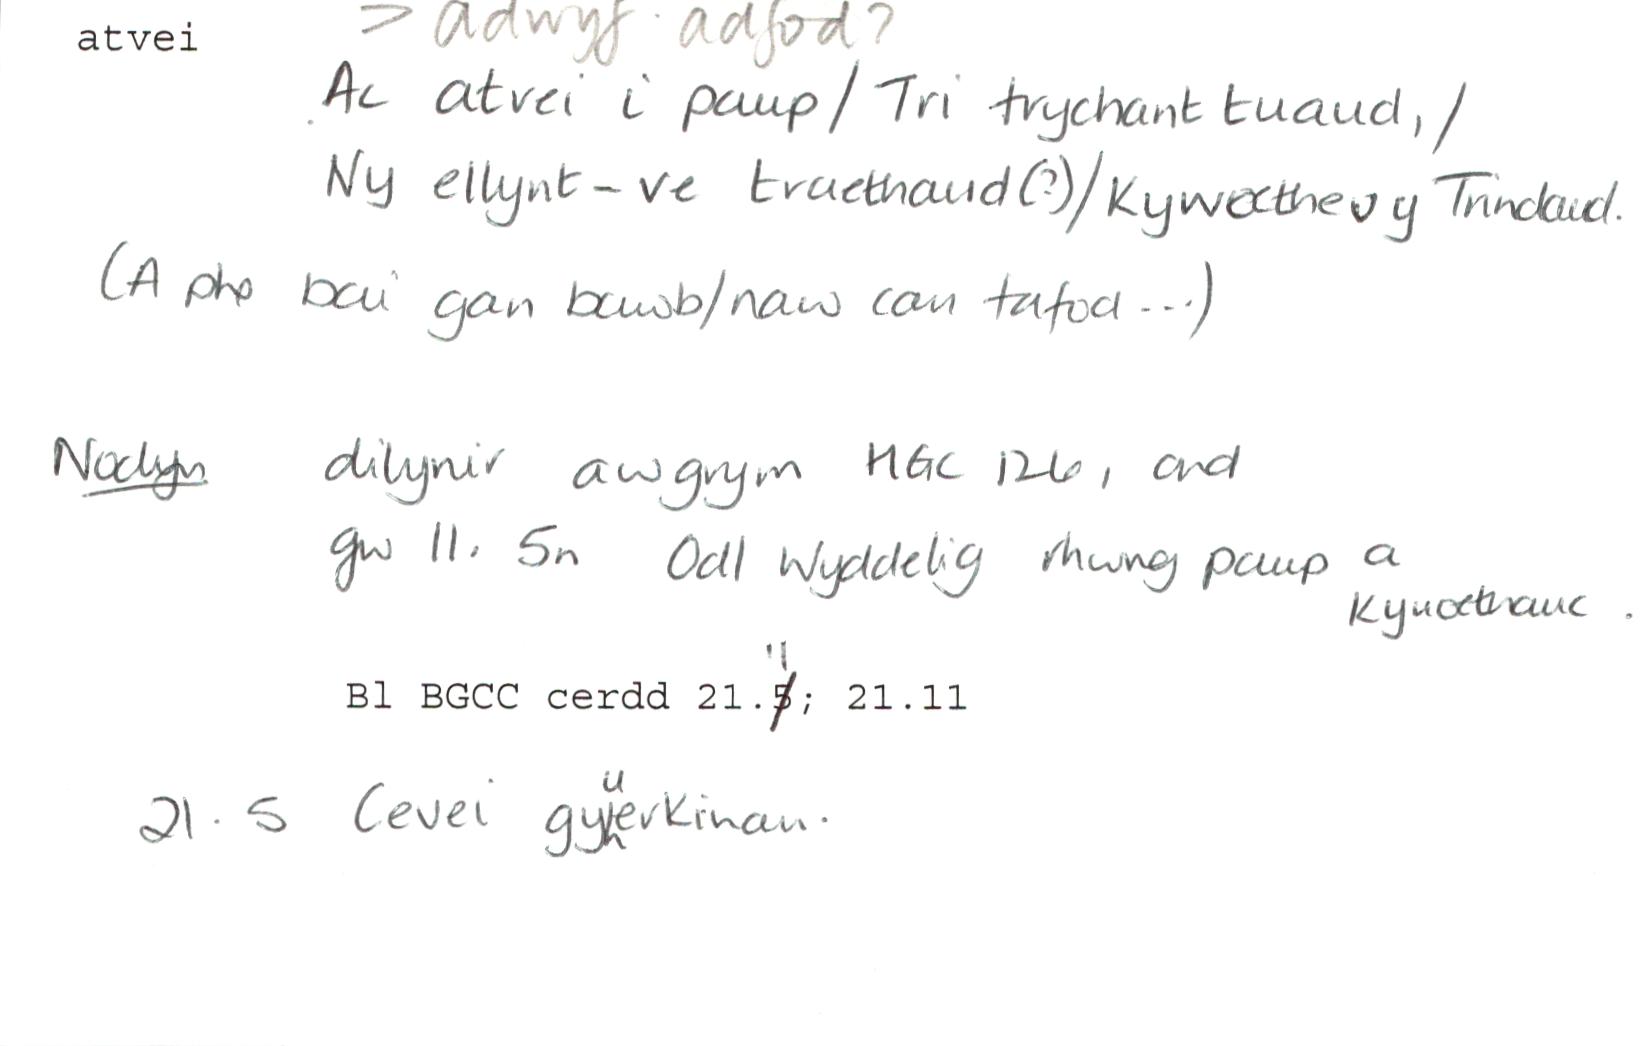 atvei > adwyf. adfod?
Ac atvei i paup / Tri trychant tuaud, /
Ny ellynt-ve traethaud (?) / Kywoethev y Trindaud.
(A phe bai gan bawb / naw can tafod ...)
Nodyn dilynir awgrym HGC 126, ond
gw ll. 5n Odl Wyddelig rhwng paup a
Kyuoethauc.
11
Bl BGCC cerdd 21.5; 21.11
21.5 Cevei gyuerkinan.